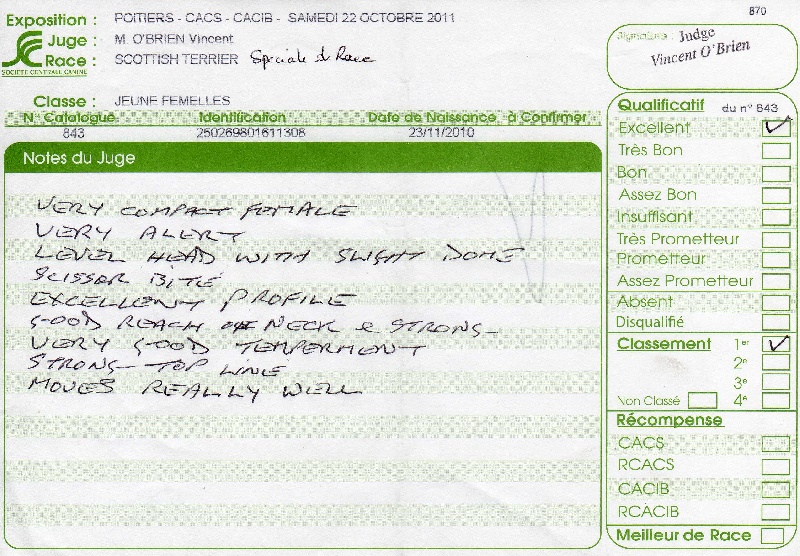 870
Exposition : POITIERS - CACS - CACIB - SAMEDI 22 OCTOBRE 2011
Juge : M. O'BRIEN Vincent
Race : SCOTTISH TERRIER Spéciale de Race
SOCIÉTÉ CENTRALE CANINE
Classe : JEUNE FEMELLES
N° Catalogue Identification Date de Naissance à Confirmer
843 250269801611308 23/11/2010
Notes du Juge
VERY COMPACT FEMALE
VERY ALERT
LEVEL HEAD WITH SLIGHT DOME
SCISSOR BITE
EXCELLENT PROFILE
GOOD REACH OF NECK & STRONG
VERY GOOD TEMPERMENT
STRONG TOP LINE
MOVES REALLY WELL
Signature : Judge
Vincent O'Brien
Qualificatif du n° 843
Excellent
Très Bon
Bon
Assez Bon
Insuffisant
Très Prometteur
Prometteur
Assez Prometteur
Absent
Disqualifié
Classement 1er
2e
3e
Non Classé 4e
Récompense
CACS
RCACS
CACIB
RCACIB
Meilleur de Race